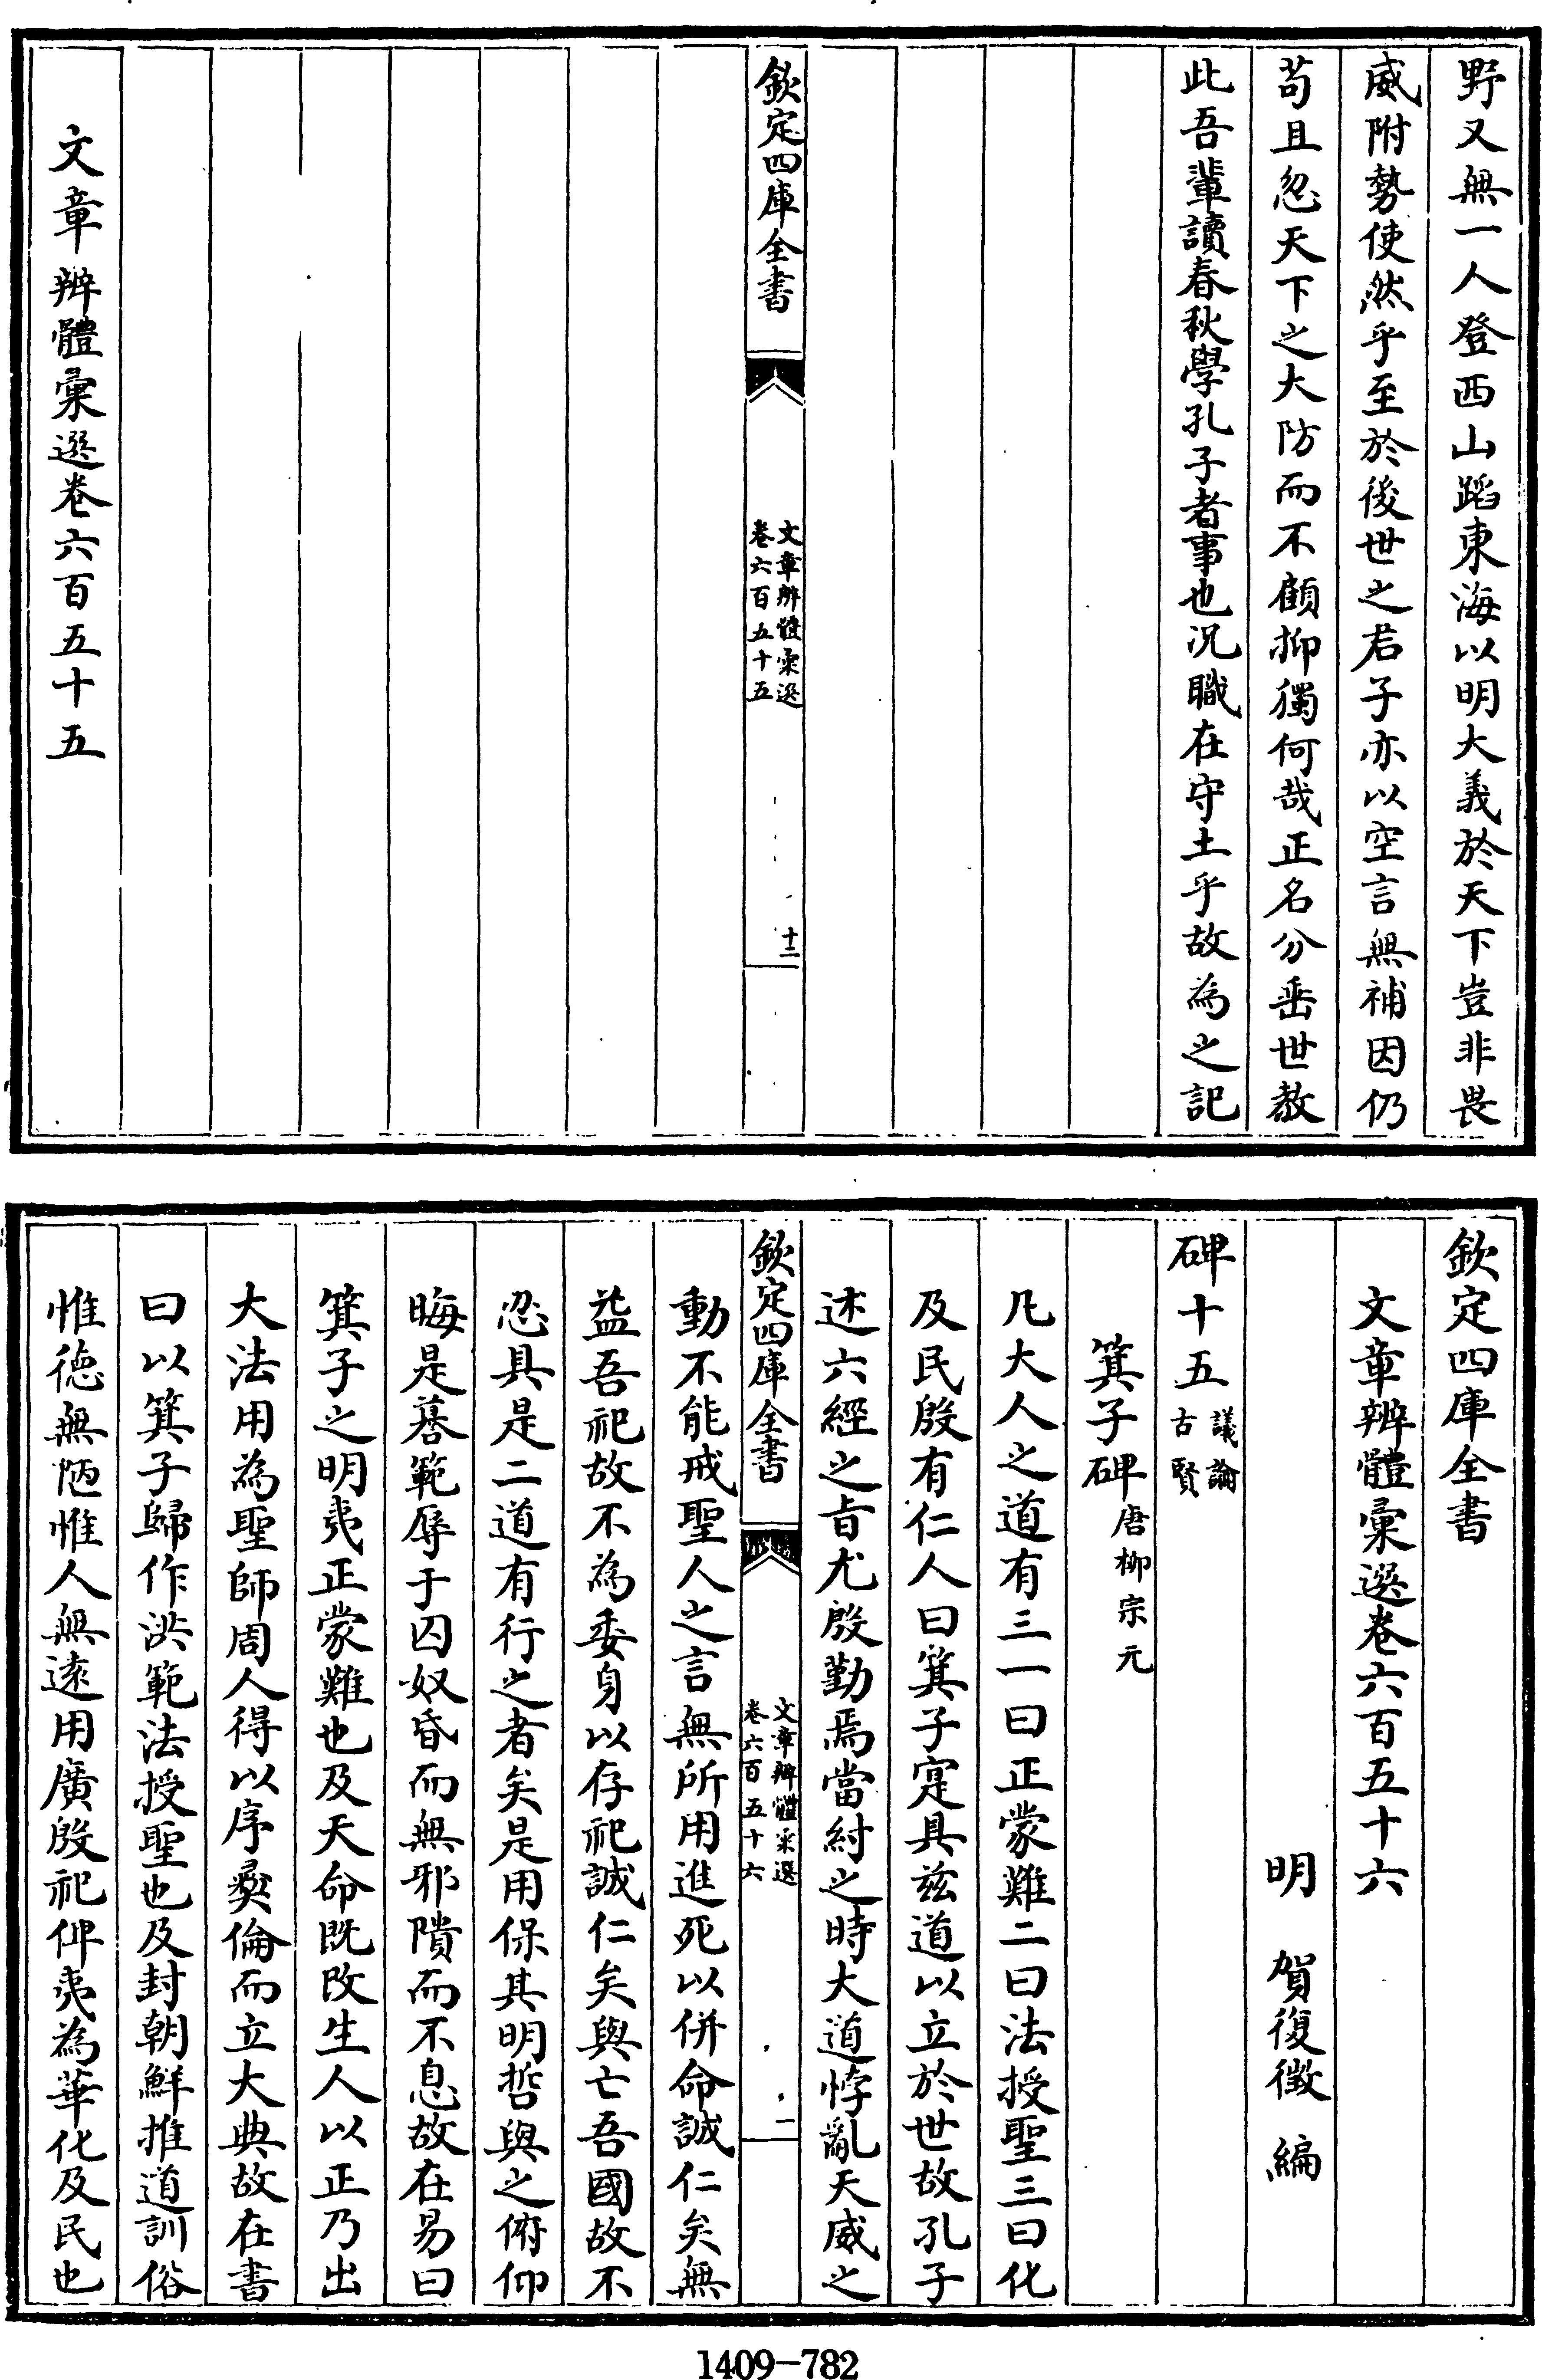 野又無一人登西山蹈東海以明大義於天下豈非畏
威附勢使然乎至於後世之君子亦以空言無補因仍
苟且忽天下之大防而不顧抑獨何哉正名分垂世教
此吾輩讀春秋學孔子者事也况職在守土乎故為之記
欽定四庫全書
文章辨體彙選
卷六百五十五
十二
文章辨體彙選卷六百五十五
欽定四庫全書
文章辨體彙選卷六百五十六
明 賀復徵 編
碑十五議論
古賢
箕子碑唐柳宗元
凡大人之道有三一曰正蒙難二曰法授聖三曰化
及民殷有仁人曰箕子寔具兹道以立於世故孔子
述六經之旨尤殷勤焉當紂之時大道悖亂天威之
欽定四庫全書
文章辨體彙選
卷六百五十六
一
動不能戒聖人之言無所用進死以併命誠仁矣無
益吾祀故不為委身以存祀誠仁矣與亡吾國故不
忍具是二道有行之者矣是用保其明哲與之俯仰
晦是謩範辱于囚奴昏而無邪隤而不息故在易曰
箕子之明夷正蒙難也及天命既改生人以正乃出
大法用為聖師周人得以序彛倫而立大典故在書
曰以箕子歸作洪範法授聖也及封朝鮮推道訓俗
惟徳無陋惟人無逺用廣殷祀俾夷為華化及民也
1409-782